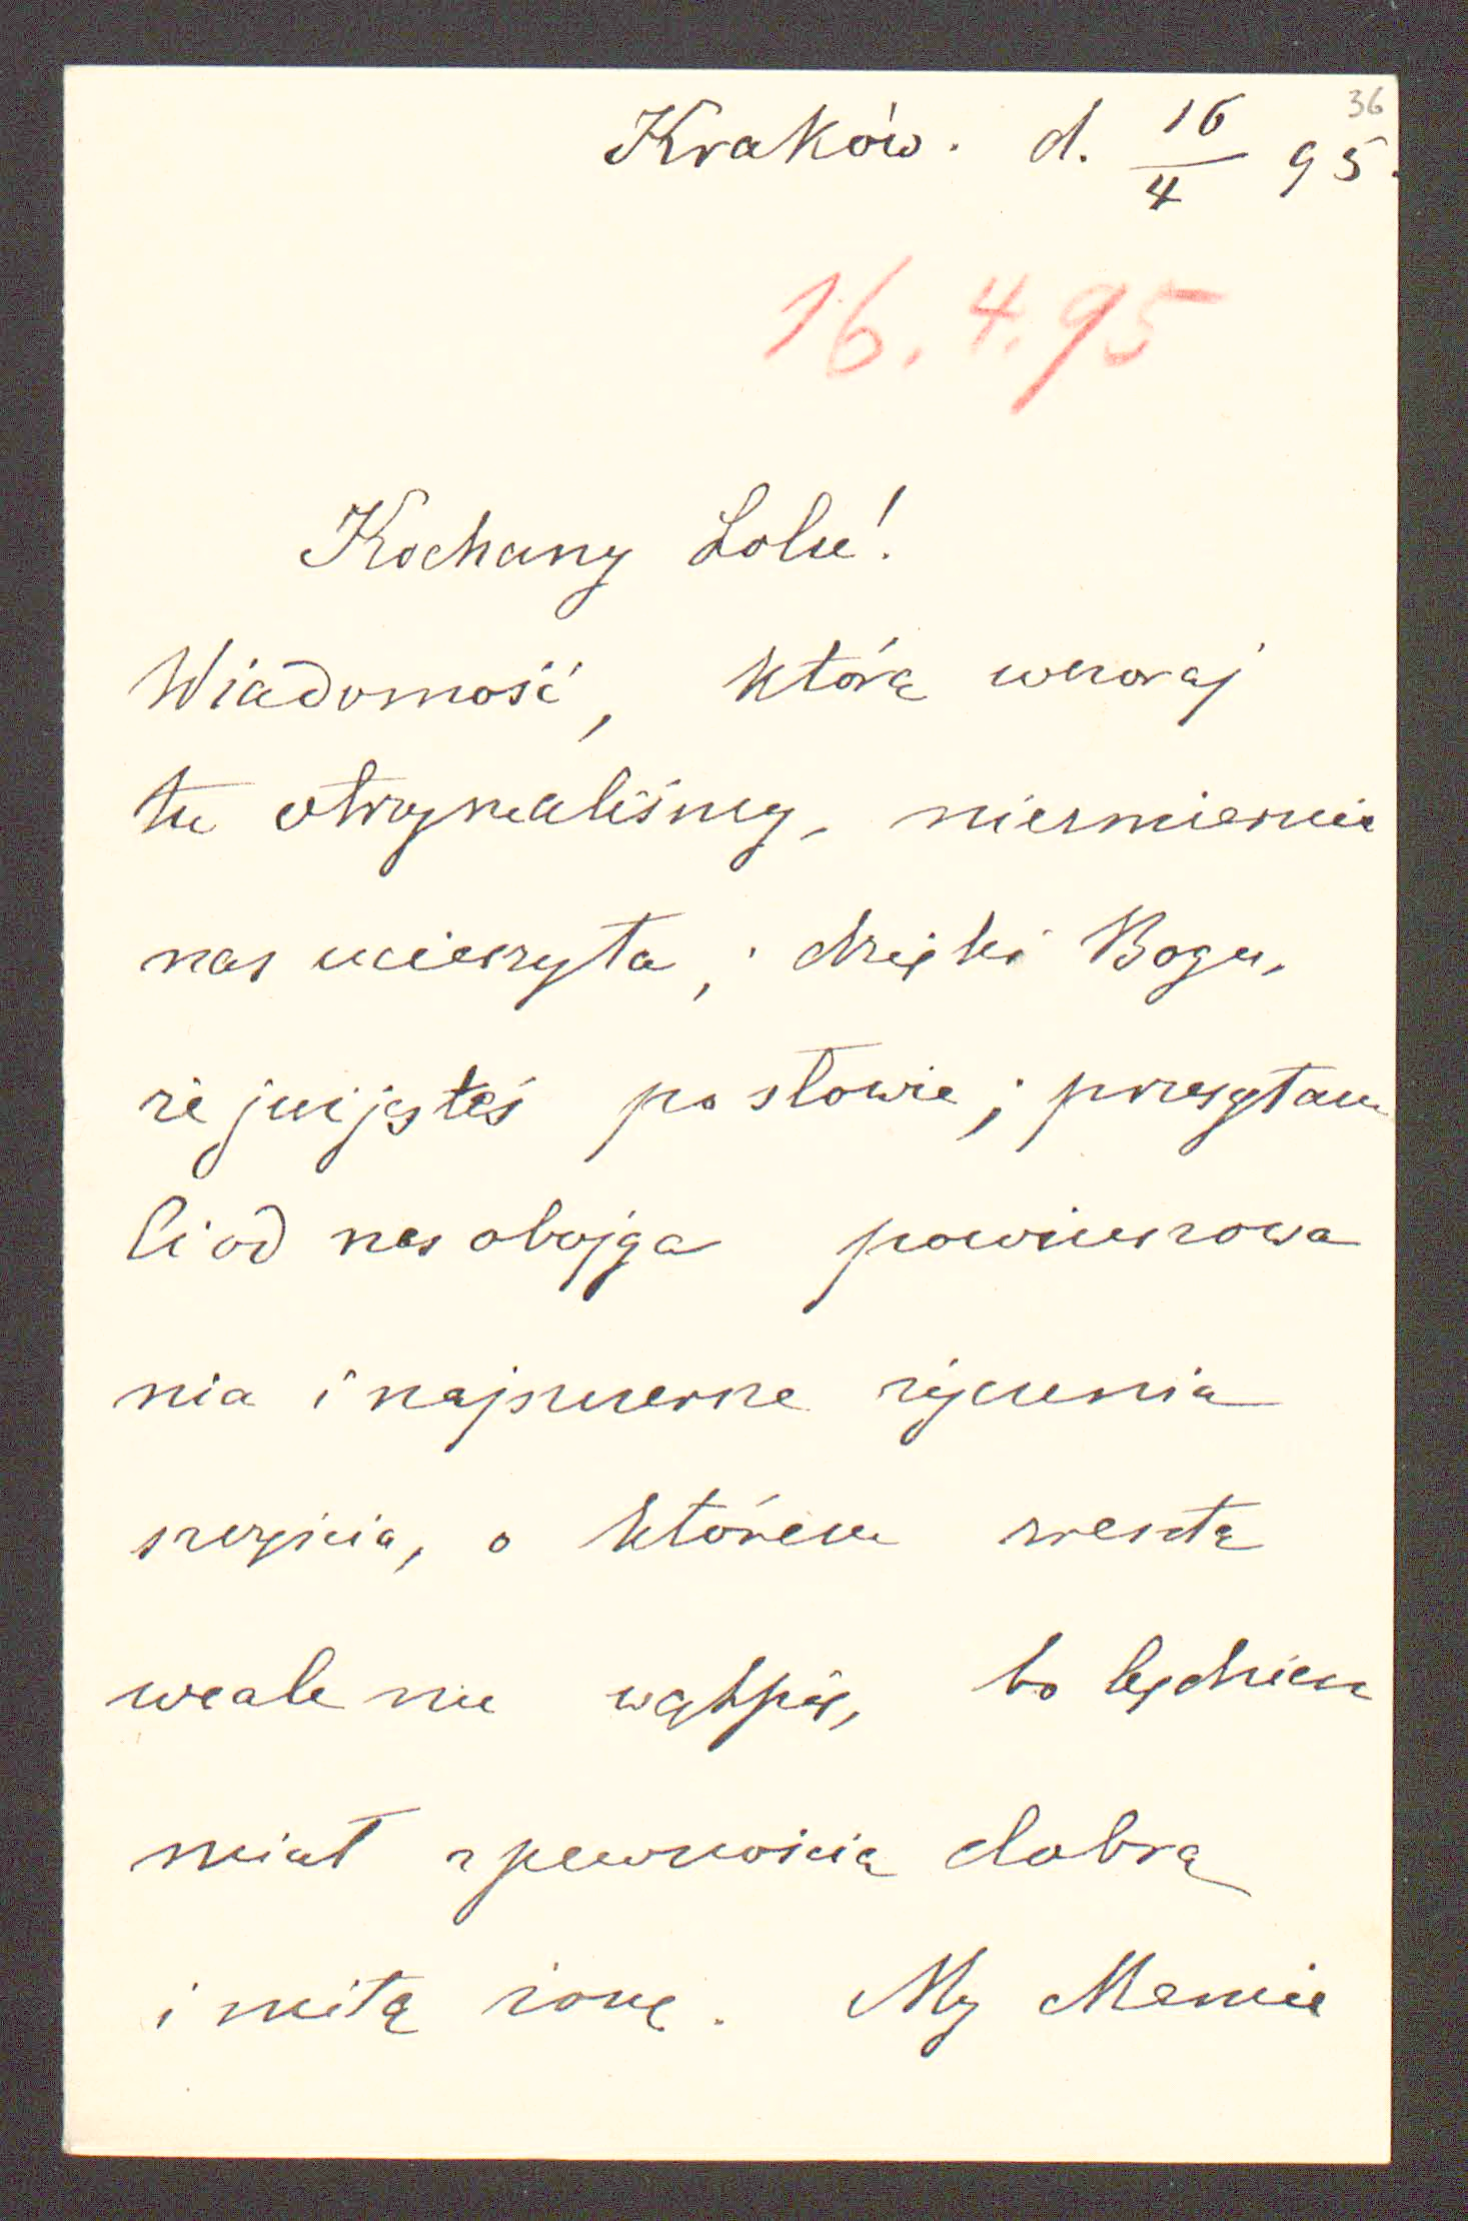 36
Kraków. d. 16/4 95.
16.4.95
Kochany Lolu!
Wiadomość, którą wczoraj
tu otrzymaliśmy, niezmiernie
nas ucieszyła, dzięki Bogu,
że już jesteś po słowie; przesyłam
Ci od nas obojga powinszowa
nia i najszczersze życzenia
szczęścia, o którem zresztą
wcale nie wątpię, bo będziesz
miał z pewnością dobrą
i miłą żonę. My Memie